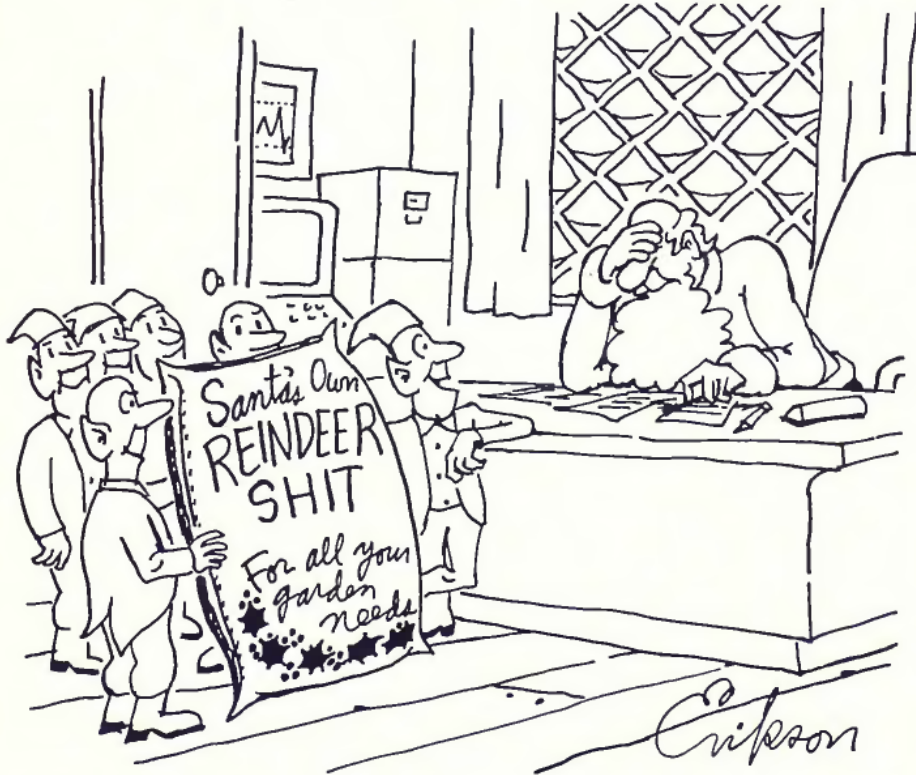 Santa's Own
REINDEER
SHIT
For all your
garden
needs
Erikson